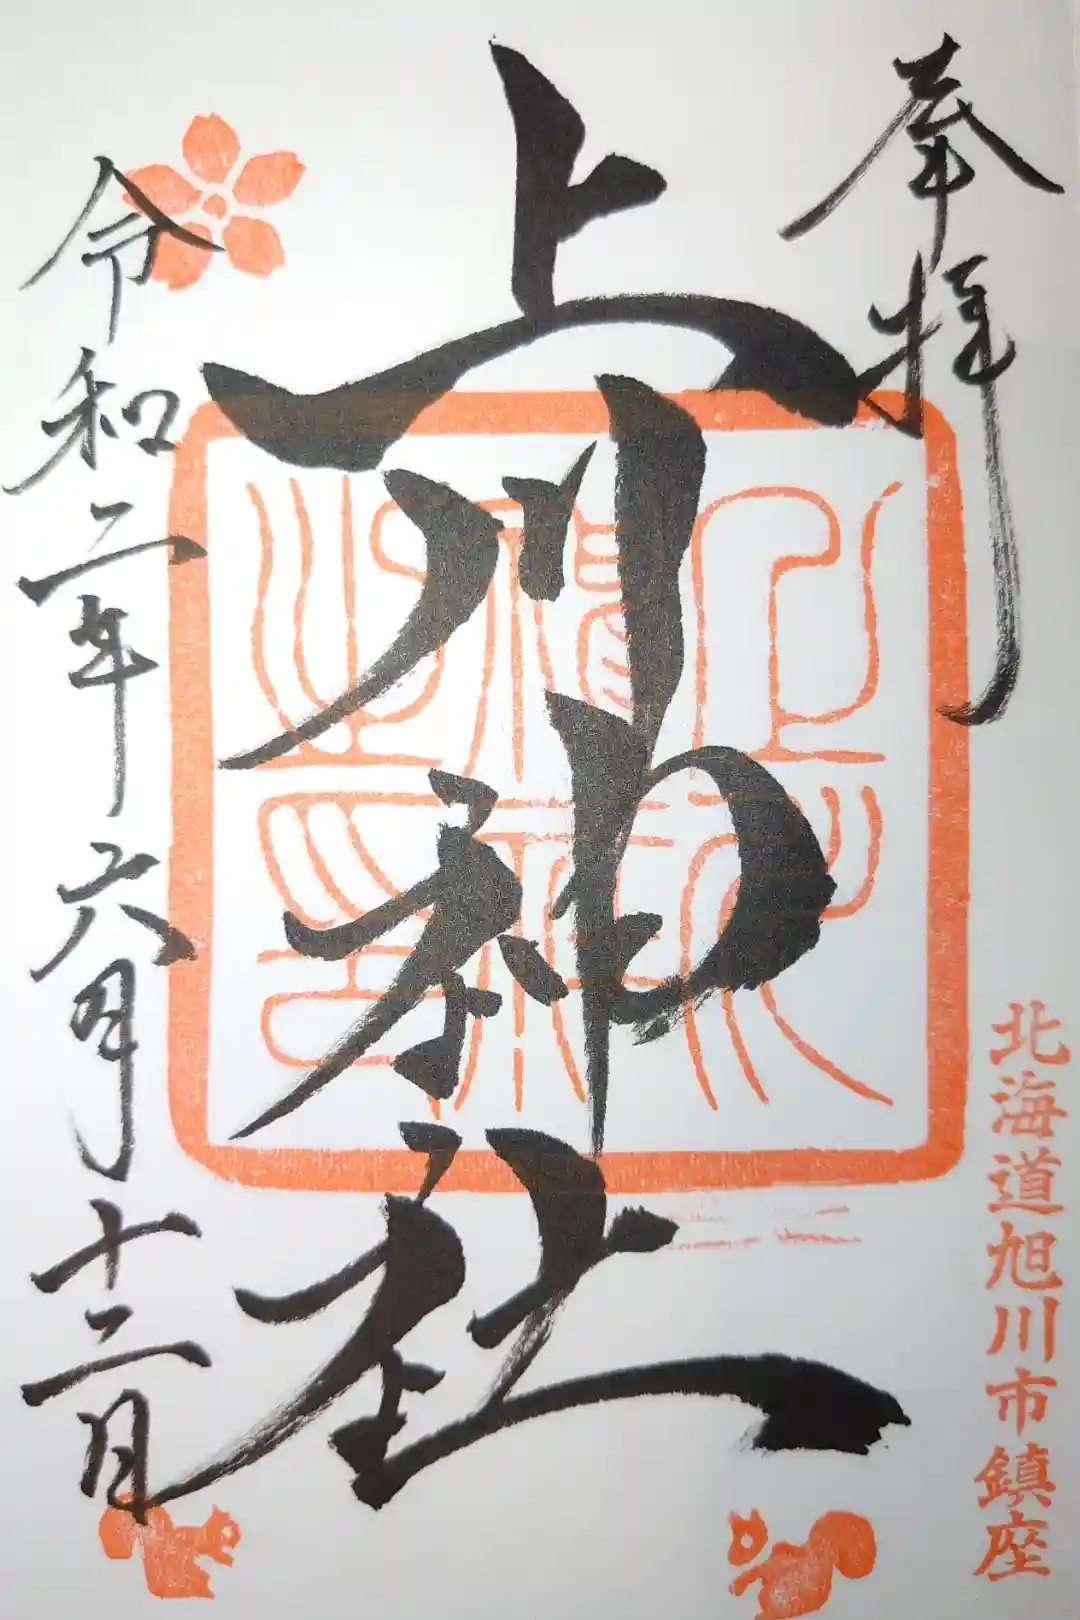 奉拝
北海道旭川市鎮座
上川神社
令和二年六月十二日